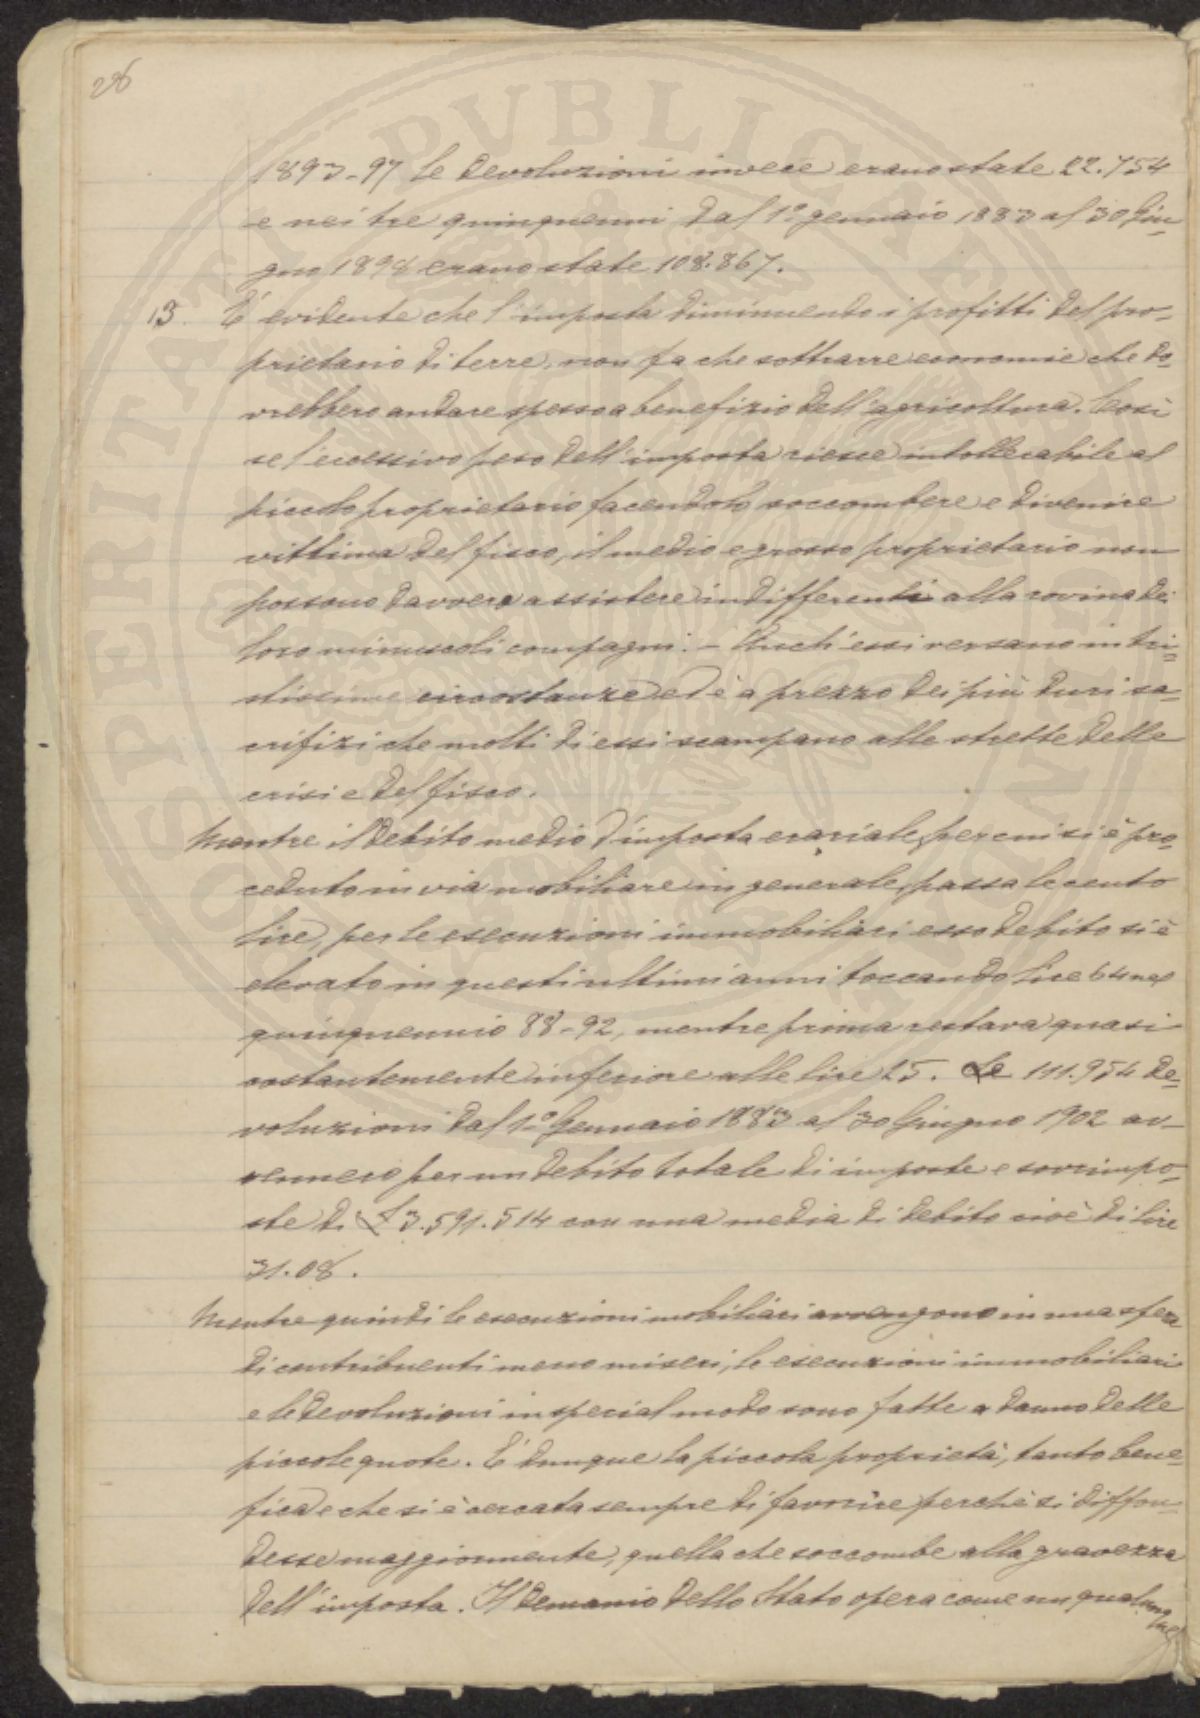 26
1893-97 le devoluzioni invece erano state 22.754
e nei tre quinquenni dal 1° gennaio 1883 al 30 Giu-
gno 1898 erano state 108.867.
13. E' evidente che l'imposta diminuendo i profitti del pro-
prietario di terre, non fa che sottrarre economie che do-
vrebbero andare spesso a benefizio dell'agricoltura. Così
se l'eccessivo peso dell'imposta riesce intollerabile al
piccolo proprietario facendolo soccombere e divenire
vittima del fisco, il medio e grosso proprietario non
possono davvero assistere indifferenti alla rovina dei
loro minuscoli compagni. - Anch'essi versano in tri-
stissime circostanze ed è a prezzo dei più duri sa-
crifizi che molti di essi scampano alle strette della
crisi e del fisco.
Mentre il debito medio d'imposta erariale, per cui si è pro-
ceduto in via mobiliare in generale, passa le cento
lire, per le esecuzioni immobiliari esso debito si è
elevato in questi ultimi anni toccando lire 64 nel
quinquennio 88-92, mentre prima restava quasi
costantemente inferiore alle lire 25. Le 111.954 de-
voluzioni dal 1° Gennaio 1883 al 30 Giugno 1902 av-
vennero per un debito totale di imposte e sovrimpo-
ste di £ 3.591.514 con una media di debito cioè di lire
31.08.
Mentre quindi le esecuzioni mobiliari avvengono in una sfera
di contribuenti meno miseri, le esecuzioni immobiliari
e le devoluzioni in special modo sono fatte a danno delle
piccole quote. E' dunque la piccola proprietà, tanto bene-
fica e che si è cercata sempre di favorire perchè si diffon-
desse maggiormente, quella che soccombe alla gravezza
dell'imposta. Il demanio dello Stato opera come un qualunque
PROSPERITATI PUBLICAE AUGENDAE